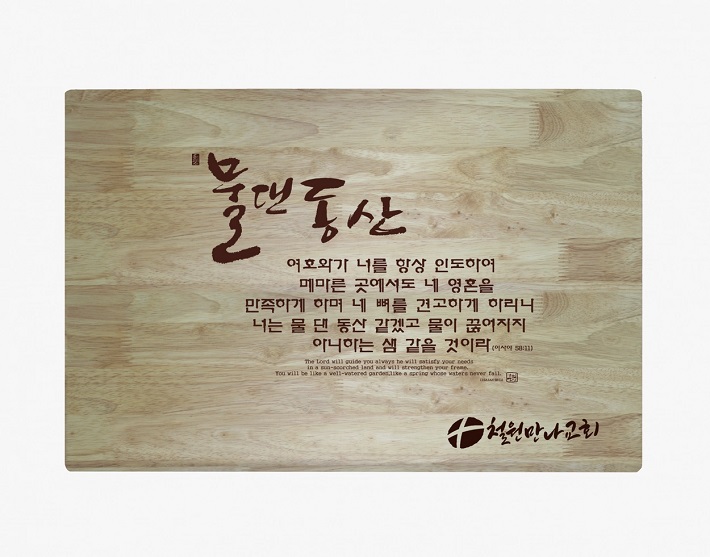 물댄동산
여호와가 너를 항상 인도하여
메마른 곳에서도 네 영혼을
만족하게 하며 네 뼈를 견고하게 하리니
너는 물 댄 동산 같겠고 물이 끊어지지
아니하는 샘 같을 것이라 (이사야 58:11)
The Lord will guide you always he will satisfy your needs
in a sun-scorched land and will strengthen your frame.
You will be like a well-watered garden,like a spring whose waters never fail.
철원만나교회